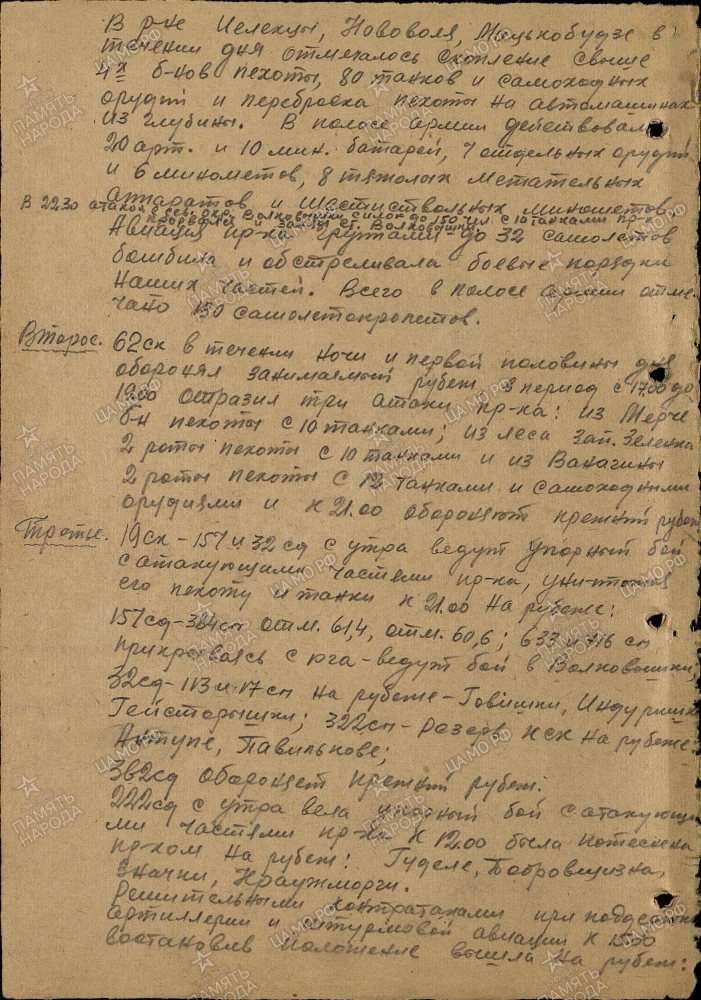 В р-не Иелекцы, Нововоля, Мацькобудзе в
течении дня отмечалось скопление свыше
4х б-нов пехоты, 80 танков и самоходных
орудий и переброска пехоты на автомашинах
из глубины. В полосе армии действовали
20 арт. и 10 мин. батарей, 7 отдельных орудий
и 6 минометов, 8 тяжолых метательных
аппаратов и шестиствольных минометов.
В 22.30 атаков. Волковышки силой до 150 чел. с 10 танками пр-к
прорвался и занял ст. Волковышки.
Авиация пр-ка группами до 32 самолетов
бомбила и обстреливала боевые порядки
наших частей. Всего в полосе армии отме-
чено 130 самолетопролетов.
Второе. 62ск в течении ночи и первой половины дня
оборонял занимаемый рубеж в период с 17.00 до
19.00 отразил три атаки пр-ка: из Мерче
б-н пехоты с 10 танками; из леса зап. Зеленка
2 роты пехоты с 10 танками и из Вакагины
2 роты пехоты с 12 танками и самоходными
орудиями и к 21.00 обороняет прежний рубеж
Третье. 19ск - 157 и 32 сд с утра ведут упорный бой
с атакующими частями пр-ка, уничтожая
его пехоту и танки к 21.00 на рубеже:
157сд - 384сп отм. 61,4, отм. 60,6; 633 и 716 сп
прикрываясь с юга - ведут бой в Волковышки;
32сд - 113 и 17 сп на рубеже - Говишки, Индуришки
Гейсторышки; 322сп - резерв кск на рубеже:
Антупе, Павильнове;
362сд обороняет прежний рубеж.
222сд с утра вела упорный бой с атакующи
ми частями пр-ка к 12.00 была потеснена
пр-ком на рубеж: Гуделе, Бобровщизна,
Значки, Краужморги.
Решительными контратаками при поддержке
артиллерии и штурмовой авиации к 15.00
востановив положение вышла на рубеж:
ПАМЯТЬ НАРОДА
ЦАМО.РФ